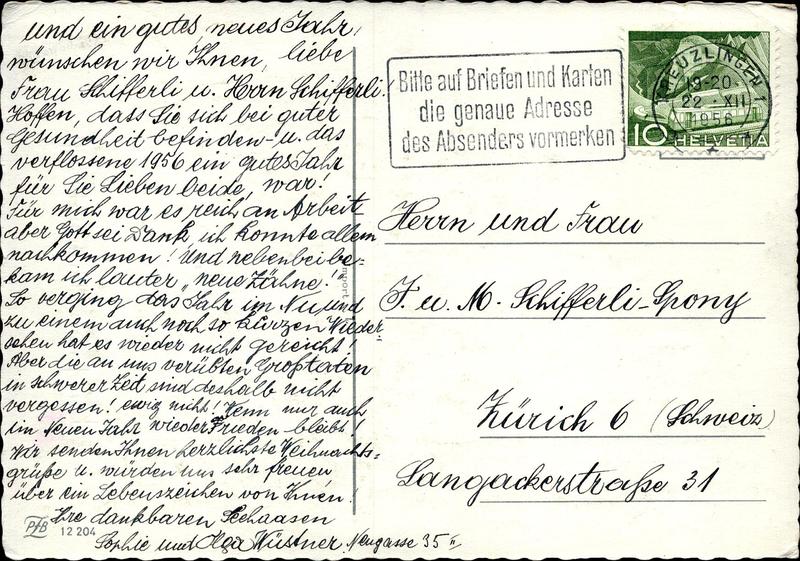 und ein gutes neues Jahr,
wünschen wir Ihnen, liebe
Frau Schifferli u. Herrn Schifferli!
Hoffen, dass Sie sich bei guter
Gesundheit befinden - u. das
verflossene 1956 ein gutes Jahr
für Sie Lieben beide, war!
Für mich war es reich an Arbeit
aber Gott sei Dank, ich konnte allem
nachkommen! Und nebenbei be-
kam ich lauter „neue Zähne!"
So verging das Jahr im Nu und
zu einem auch noch so kurzen Wieder-
sehen hat es wieder nicht gereicht!
Aber die an uns verübten Großtaten
in schwerer Zeit sind deshalb nicht
vergessen! ewig nicht! Wenn nur auch
im Neuen Jahr wieder Frieden bleibt!
Wir senden Ihnen herzlichste Weihnachts-
grüße u. würden uns sehr freuen
über ein Lebenszeichen von Ihnen!
Ihre dankbaren Seehaasen
Sophie und Olga Wüstner Neugasse 35 II
PfB
12 204
import
Bitte auf Briefen und Karten
die genaue Adresse
des Absenders vormerken
KREUZLINGEN 1
19-20
22.XII
1956
10 HELVETIA
Herrn und Frau
F. u. M. Schifferli-Spony
Zürich 6 (Schweiz)
Langackerstraße 31